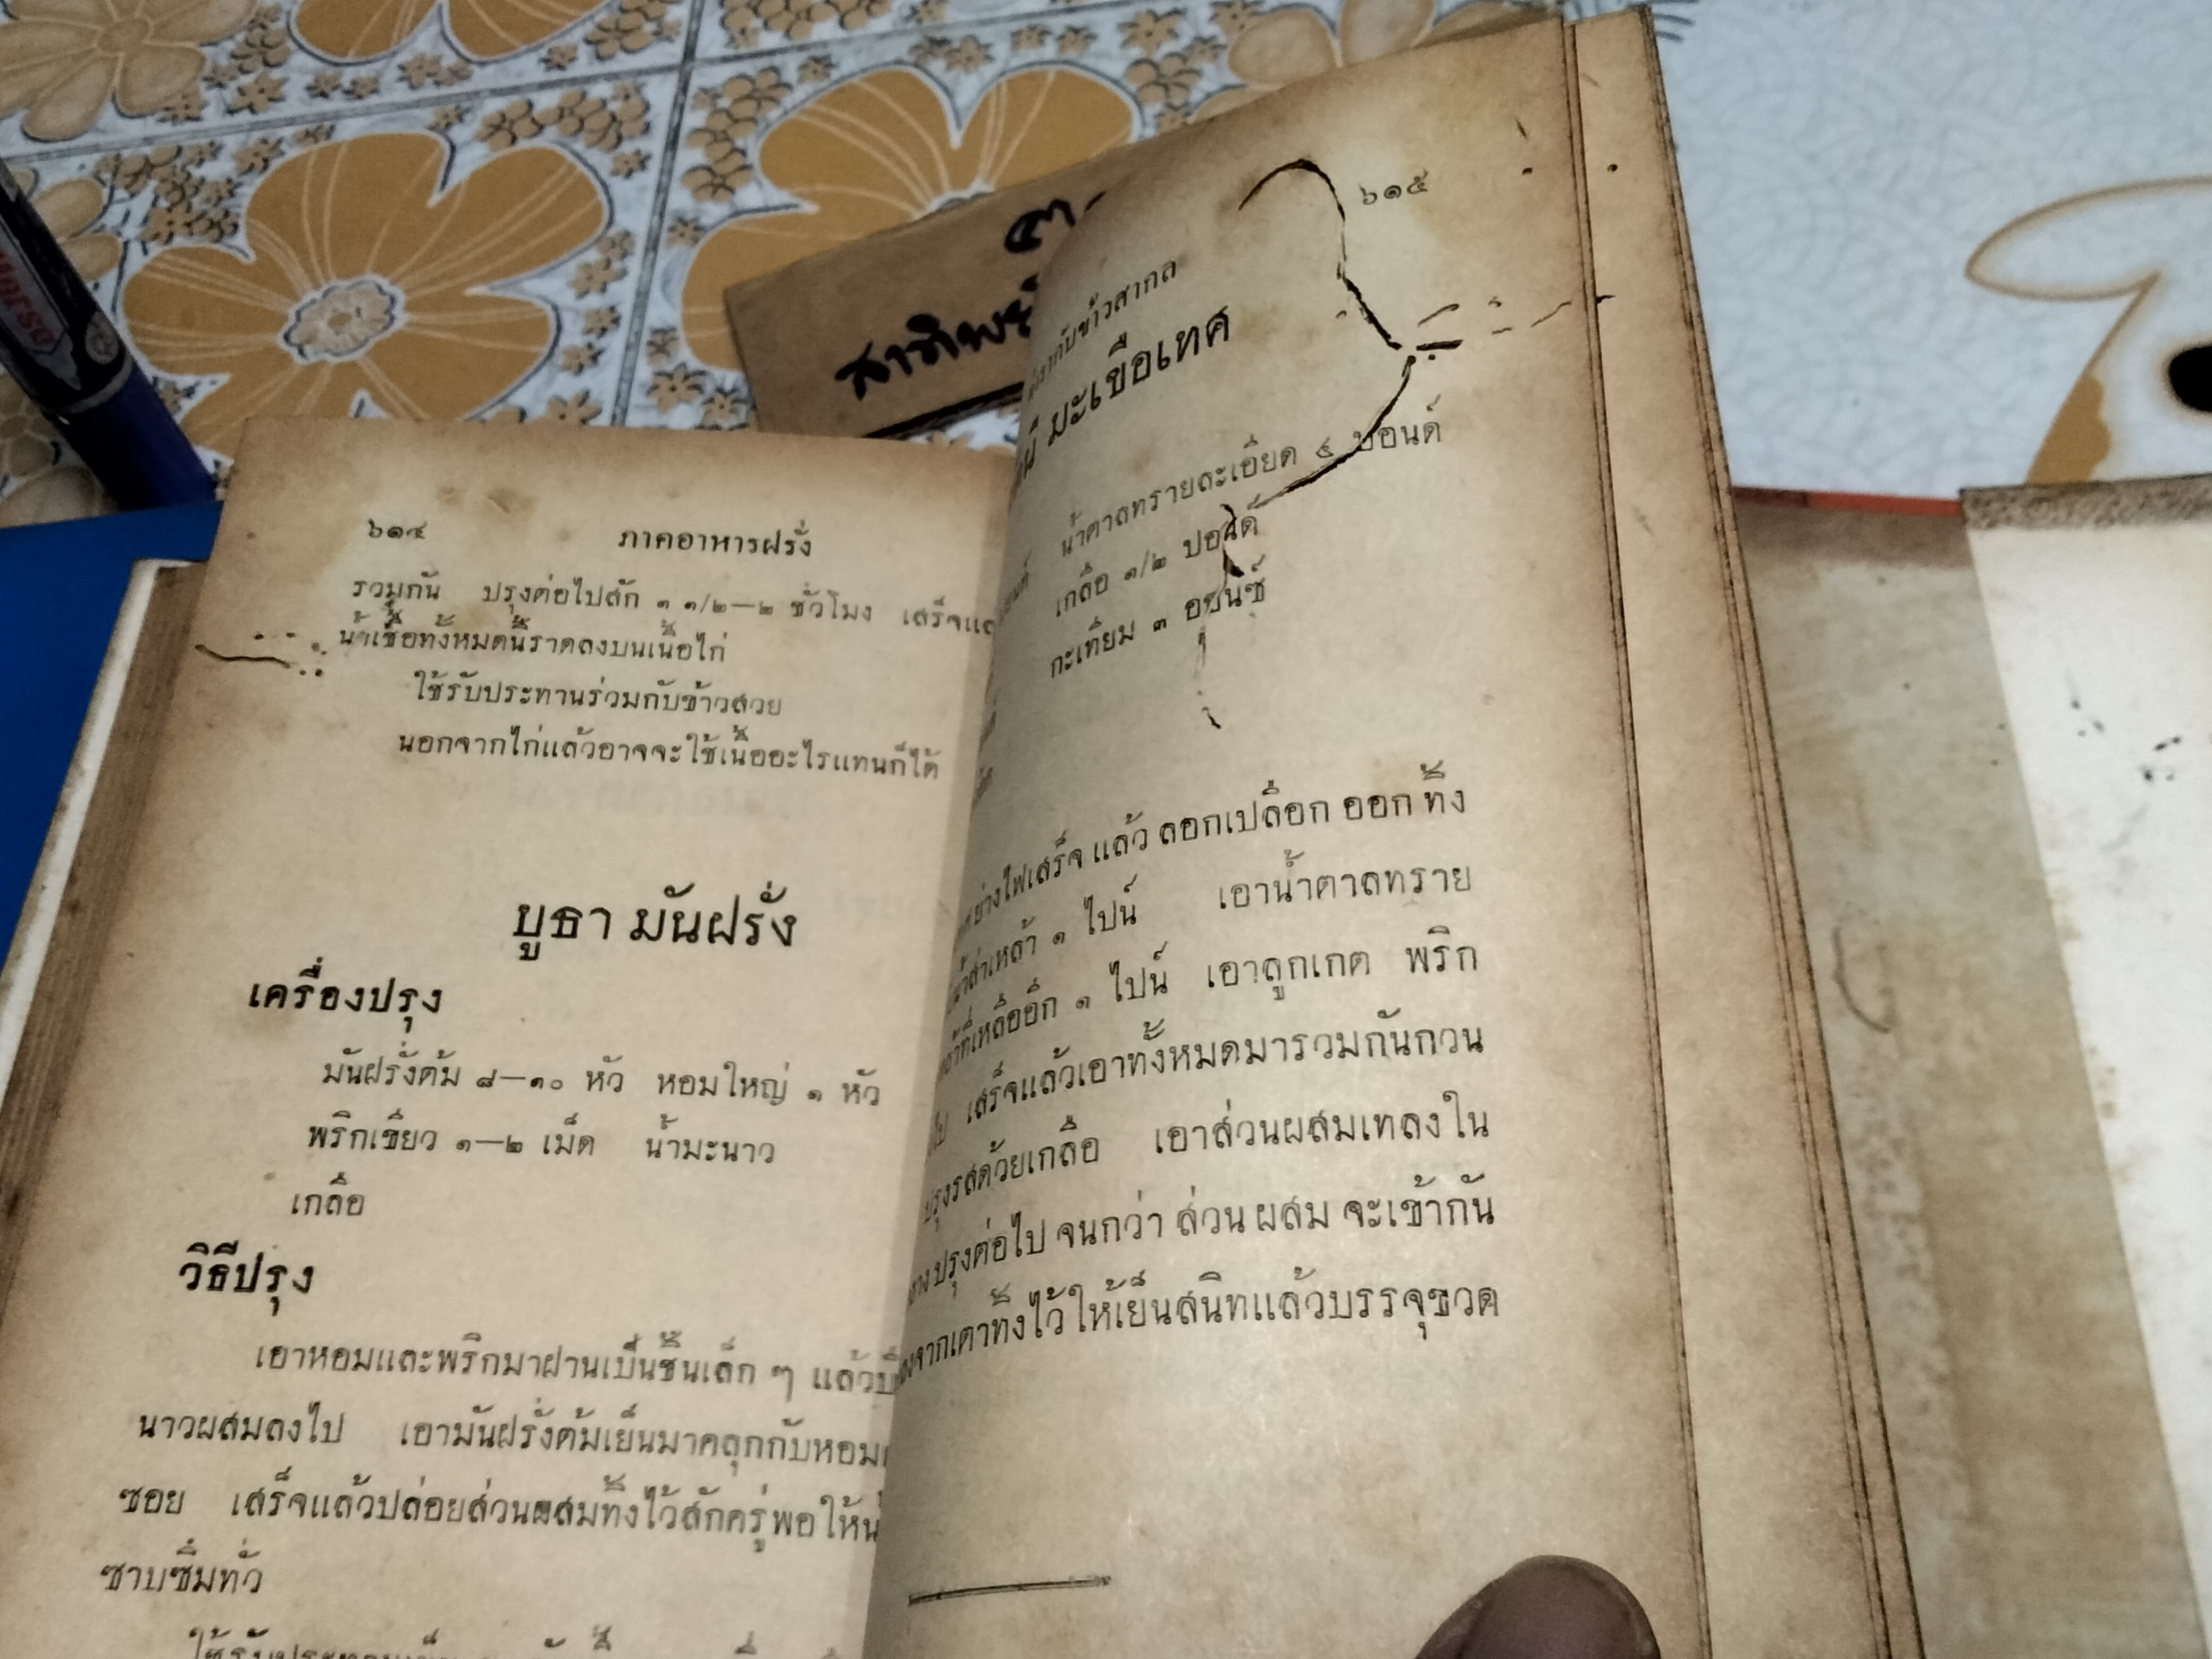 ๖๑๔ ภาคอาหารฝรั่ง
รวมกัน ปรุงต่อไปสัก ๑ ๑/๒—๒ ชั่วโมง
น้ำเชื้อทั้งหมดนี้ราดลงบนเนื้อไก่
ใช้รับประทานร่วมกับข้าวสวย
นอกจากไก่แล้วอาจจะใช้เนื้ออะไรแทนก็ได้
บูธา มันฝรั่ง
เครื่องปรุง
มันฝรั่งต้ม ๘—๑๐ หัว หอมใหญ่ ๑ หัว
พริกเขียว ๑—๒ เม็ด น้ำมะนาว
เกลือ
วิธีปรุง
เอาหอมและพริกมาฝานเป็นชิ้นเล็ก ๆ แล้ว
นาวผสมลงไป เอามันฝรั่งต้มเย็นมาคลุกกับหอม
ซอย เสร็จแล้วปล่อยส่วนผสมทิ้งไว้สักครู่พอให้
ซาบซึมทั่ว
๖๑๕
กับข้าวสากล
มะเขือเทศ
น้ำตาลทรายละเอียด ๔ ปอนด์
เกลือ ๑/๒ ปอนด์
กะเทียม ๓ ออนซ์
ย่างไฟเสร็จ แล้ว ลอกเปลือก ออก ทิ้ง
น้ำส่าเหล้า ๑ ไปน์ เอาน้ำตาลทราย
ที่เหลืออีก ๑ ไปน์ เอาลูกเกต พริก
เสร็จแล้วเอาทั้งหมดมารวมกันกวน
ปรุงรสด้วยเกลือ เอาส่วนผสมเทลงใน
ปรุงต่อไป จนกว่า ส่วน ผสม จะเข้ากัน
จากเตาทิ้งไว้ให้เย็นสนิทแล้วบรรจุขวด